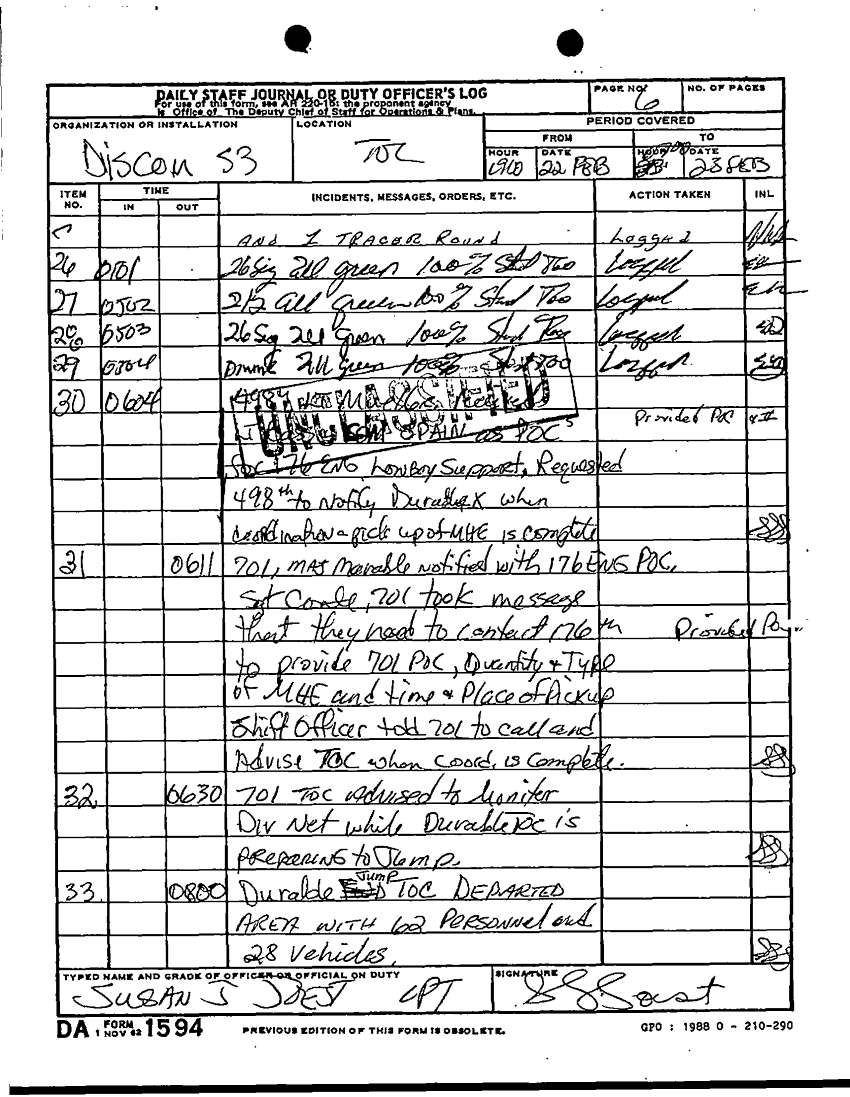 DAILY STAFF JOURNAL OR DUTY OFFICER'S LOG
For use of this form, see AR 220-15; the proponent agency
is Office of The Deputy Chief of Staff for Operations & Plans.
PAGE NO. 6
NO. OF PAGES
ORGANIZATION OR INSTALLATION
DISCOM S3
LOCATION
TOC
PERIOD COVERED
FROM
TO
HOUR
DATE
HOUR
DATE
22 FEB
23 FEB
ITEM NO.
TIME
IN
OUT
INCIDENTS, MESSAGES, ORDERS, ETC.
ACTION TAKEN
INL
AND 1 TRACER ROUND Logged
26 26 Sig all green 100% Stand Too Logged
27 0502 212 All Green 100% Stand Too Logged
28 0503 26 Sig all Green 100% Stand Too Logged
29 0504 all green 100% Stand Too Logged
30 0604 498th
UNCLASSIFIED
SPAIN as POC Provided POC
for 176 ENG Lowboy Support. Requested
498th to Notify Durable X when
coordination & pick up of MHE is complete
31 0611 701, MAJ Marable notified with 176 ENG POC,
701 took message
that they need to contact 176th Provided POC
to provide 701 POC, Quantity & Type
of MHE and time & Place of Pickup
Shift Officer told 701 to call and
Advise TOC when coord. is complete.
32 0630 701 TOC advised to Monitor
Div Net while Durable TOC is
PREPARING to Jump.
33 0800 Durable Jump TOC DEPARTED
AREA WITH 62 PERSONNEL and
28 Vehicles.
TYPED NAME AND GRADE OF OFFICER OR OFFICIAL ON DUTY
SUSAN J CPT
SIGNATURE
DA FORM 1594
1 NOV 62
PREVIOUS EDITION OF THIS FORM IS OBSOLETE.
GPO : 1988 O - 210-290